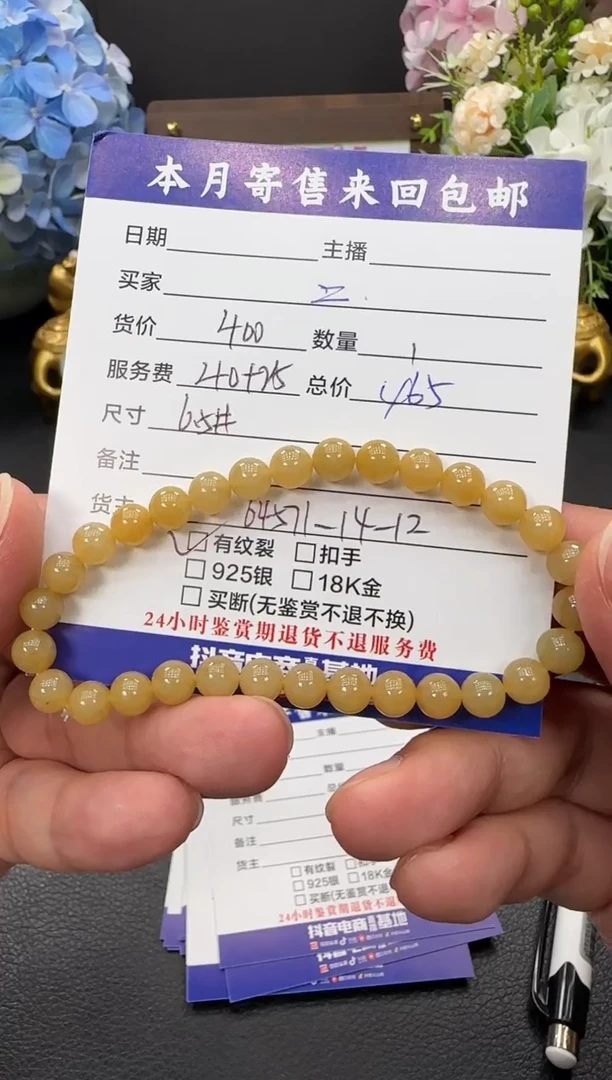 本月寄售来回包邮
日期 主播
买家 二.
货价 400 数量 1
服务费 40+25 总价 465
尺寸 6.5#
备注
货主 64571-14-12
☑有纹裂 □扣手
□925银 □18K金
□买断(无鉴赏不退不换)
24小时鉴赏期退货不退服务费
抖音电商直播基地
主播
数量
服务费
尺寸
备注
货主
□有纹裂 □扣手
□925银 □18K金
□买断(无鉴赏不退
24小时鉴赏期退货不退
抖音电商直播基地